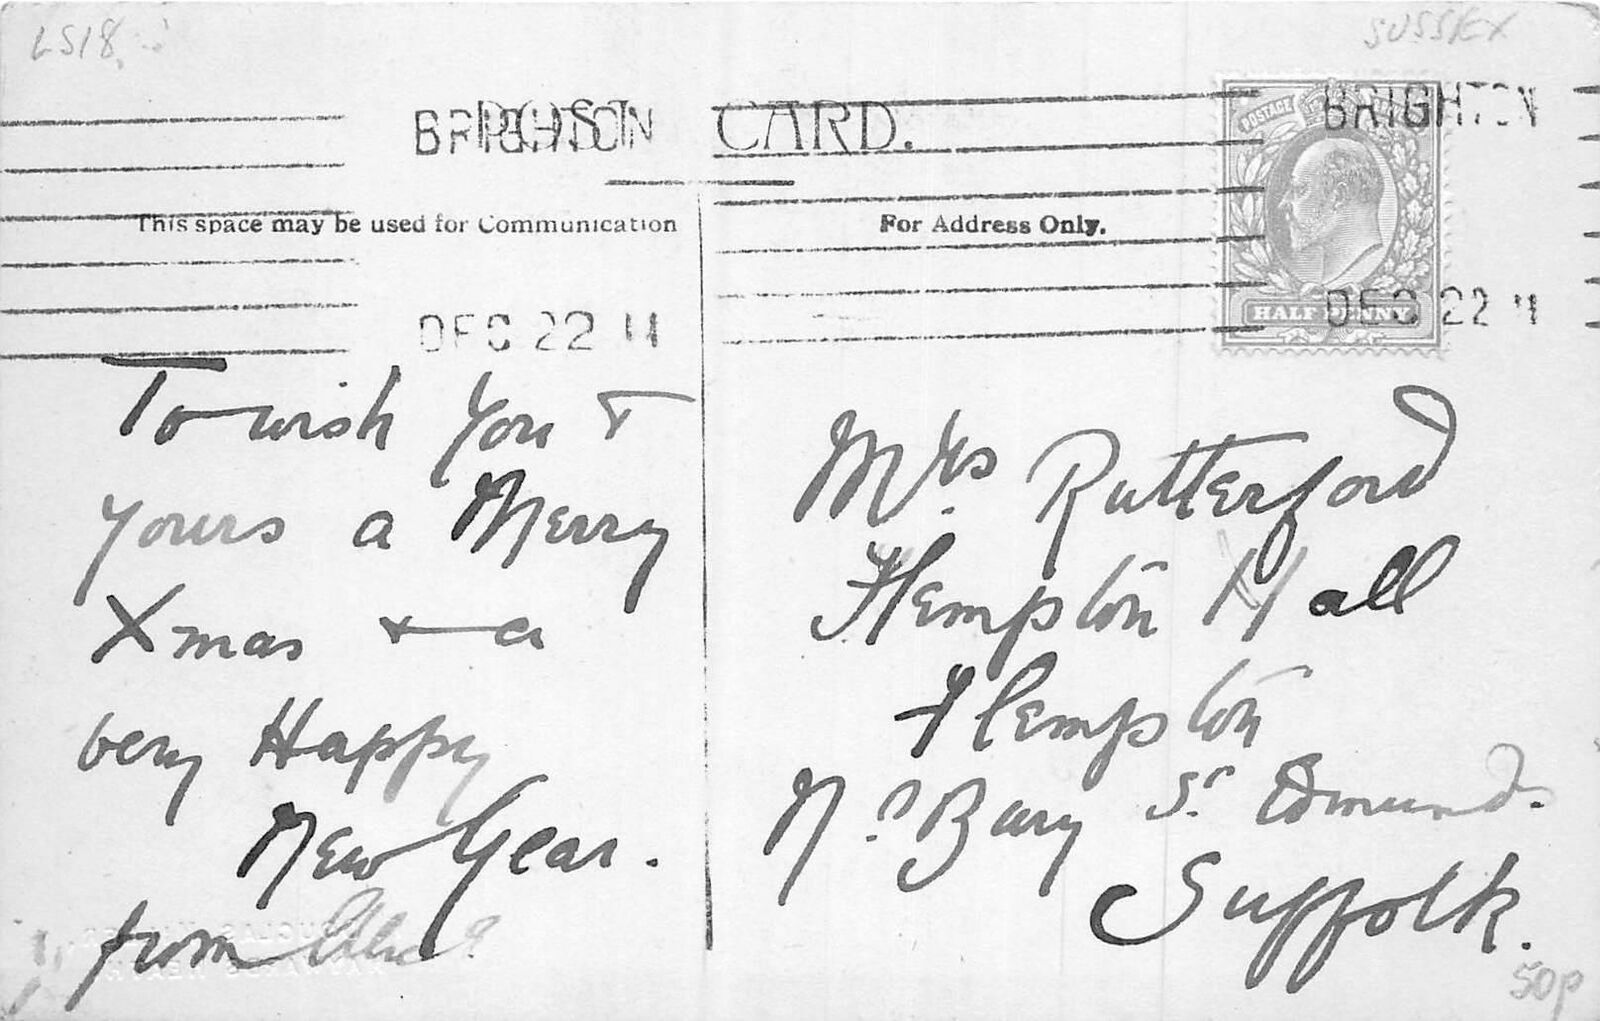 LS18
SUSSEX
POST CARD.
BRIGHTON
BRIGHTON
This space may be used for Communication
For Address Only.
POSTAGE
HALF PENNY
DEC 22 11
DEC 22 11
To wish you &
yours a Merry
Xmas & a
very Happy
New Year.
from
Mrs. Rutterford
Hempton Hall
Hempton
Nr Bury St Edmunds.
Suffolk.
50p